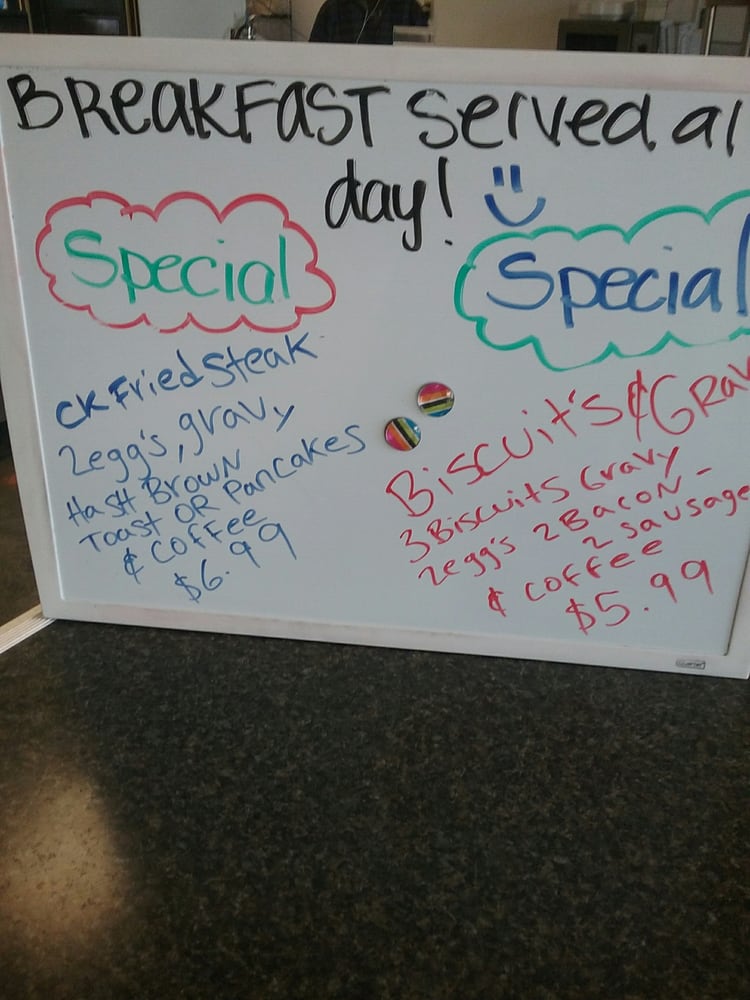 BREAKFAST Served al
day!
Special
CK Fried Steak
2egg's, gravy
Hash Brown
Toast OR Pancakes
¢ Coffee
$6.99
Special
Biscuit's ¢ Grav
3 Biscuits Gravy
2egg's 2 Bacon -
2 Sausage
¢ Coffee
$5.99